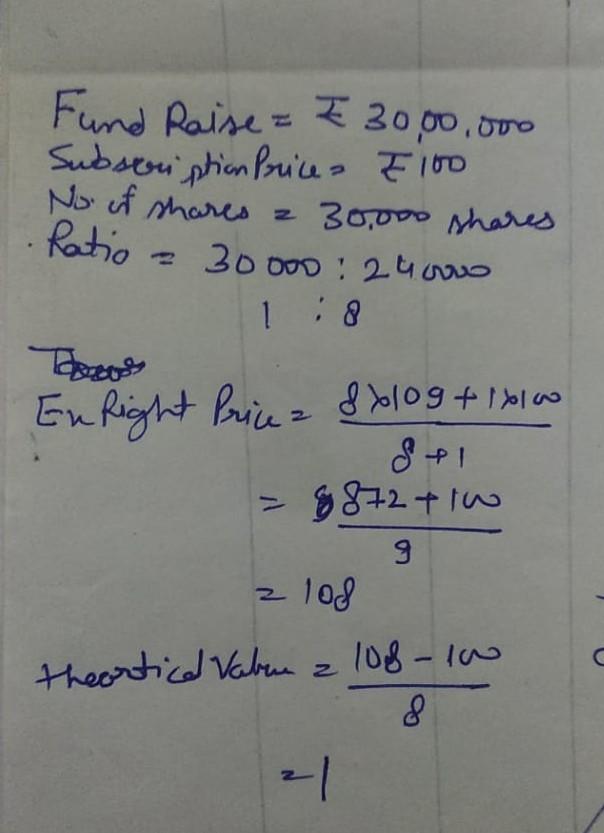 Fund Raise = ₹ 30,00,000
Subscription Price = ₹ 100
No. of shares = 30,000 shares
Ratio = 30000 : 240000
1 : 8
Ex Right Price = 8x109 + 1x100
8 + 1
= 872 + 100
9
= 108
theortical Value = 108 - 100
8
= 1